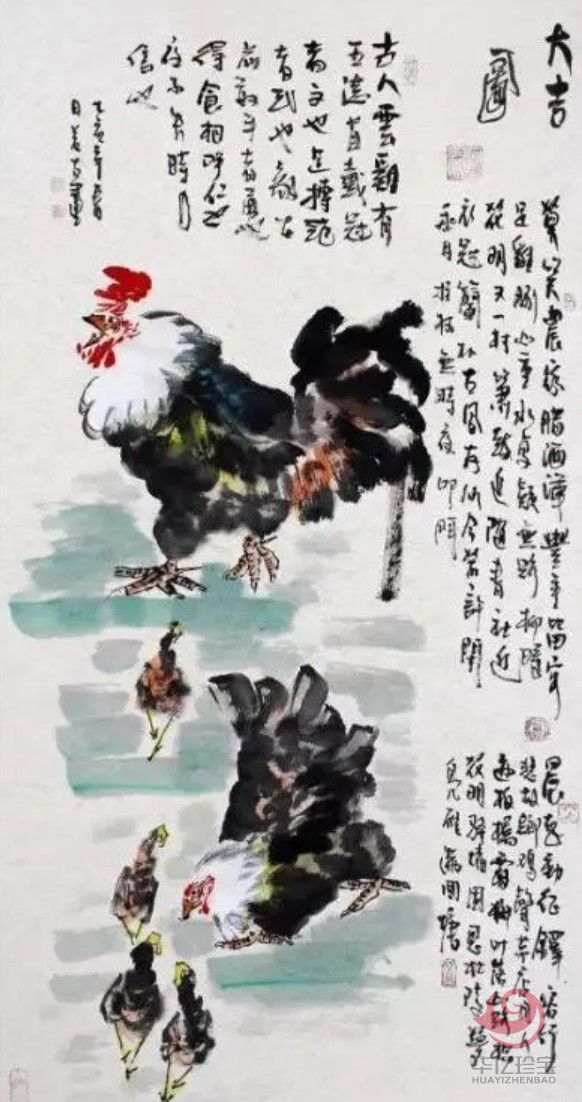 大吉
圖
莫笑農家腊酒渾豐年留客
足雞豚山重水复疑無路柳暗
花明又一村簫鼓追隨春社近
衣冠簡朴古風存從今若許閒
乘月拄杖無時夜叩門
晨起動征鐸客行
悲故鄉雞聲茅店月人
迹板橋霜槲叶落山路枳
花明驛墻因思杜陵夢
鳧雁滿回塘
古人雲雞有
五德首戴冠
者文也足搏距
者武也敵在
前敢斗者勇也
得食相呼仁也
夜不失時
信也
华亿珍宝
HUAYIZHENBAO